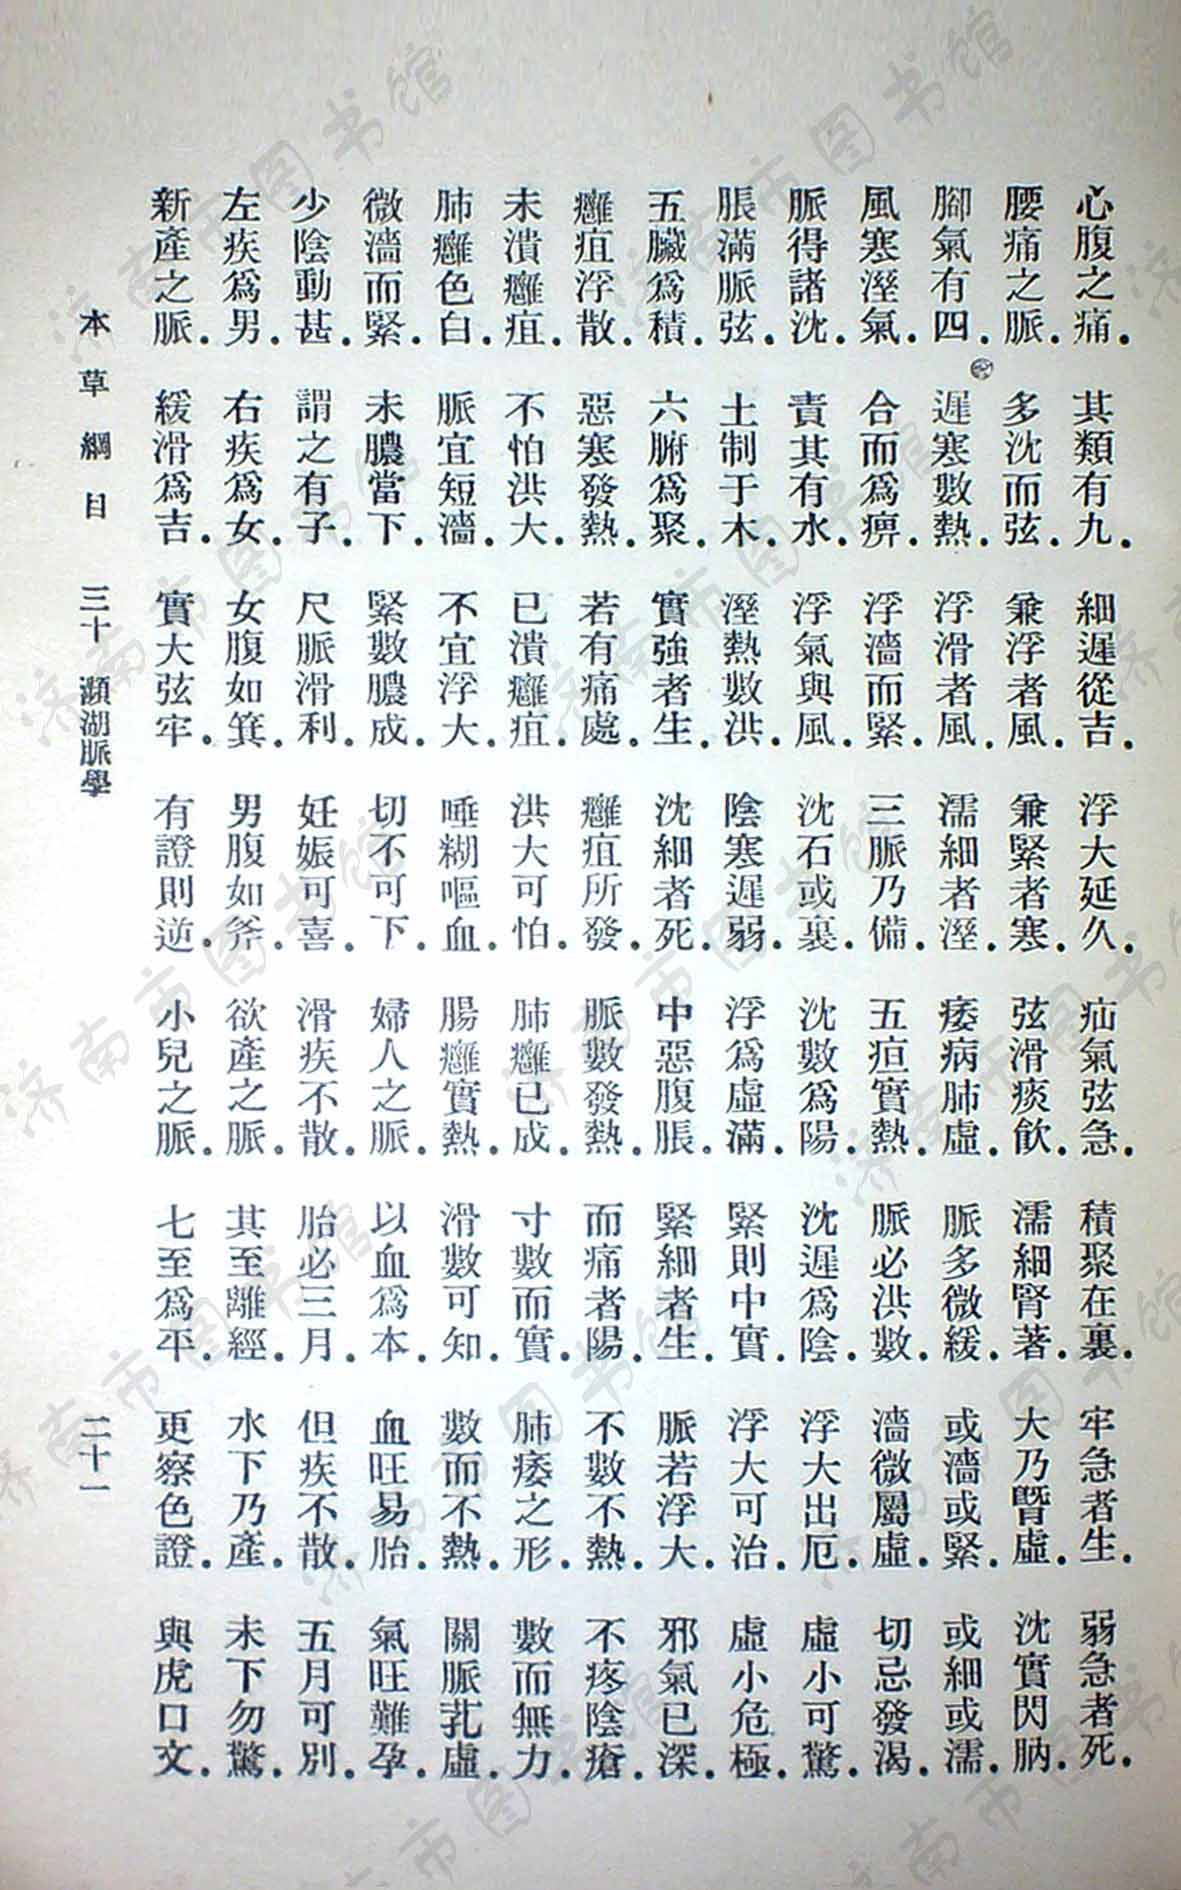 心腹之痛．其類有九．細遲從吉．浮大延久．疝氣弦急．積聚在裏．牢急者生．弱急者死．
腰痛之脈．多沈而弦．兼浮者風．兼緊者寒．弦滑痰飮．濡細腎著．大乃腎虛．沈實閃肭．
腳氣有四．遲寒數熱．浮滑者風．濡細者溼．痿病肺虛．脈多微緩．或濇或緊．或細或濡．
風寒溼氣．合而爲痹．浮濇而緊．三脈乃備．五疸實熱．脈必洪數．濇微屬虛．切忌發渴．
脈得諸沈．責其有水．浮氣與風．沈石或裏．沈數爲陽．沈遲爲陰．浮大出厄．虛小可驚．
脹滿脈弦．土制于木．溼熱數洪．陰寒遲弱．浮爲虛滿．緊則中實．浮大可治．虛小危極．
五臟爲積．六腑爲聚．實強者生．沈細者死．中惡腹脹．緊細者生．脈若浮大．邪氣已深．
癰疽浮散．惡寒發熱．若有痛處．癰疽所發．脈數發熱．而痛者陽．不數不熱．不疼陰瘡．
未潰癰疽．不怕洪大．已潰癰疽．洪大可怕．肺癰已成．寸數而實．肺痿之形．數而無力．
肺癰色白．脈宜短濇．不宜浮大．唾糊嘔血．腸癰實熱．滑數可知．數而不熱．關脈芤虛．
微濇而緊．未膿當下．緊數膿成．切不可下．婦人之脈．以血爲本．血旺易胎．氣旺難孕．
少陰動甚．謂之有子．尺脈滑利．妊娠可喜．滑疾不散．胎必三月．但疾不散．五月可別．
左疾爲男．右疾爲女．女腹如箕．男腹如斧．欲產之脈．其至離經．水下乃產．未下勿驚．
新產之脈．緩滑爲吉．實大弦牢．有證則逆．小兒之脈．七至爲平．更察色證．與虎口文．
本草綱目 三十 瀕湖脈學 二十一
济南市图书馆